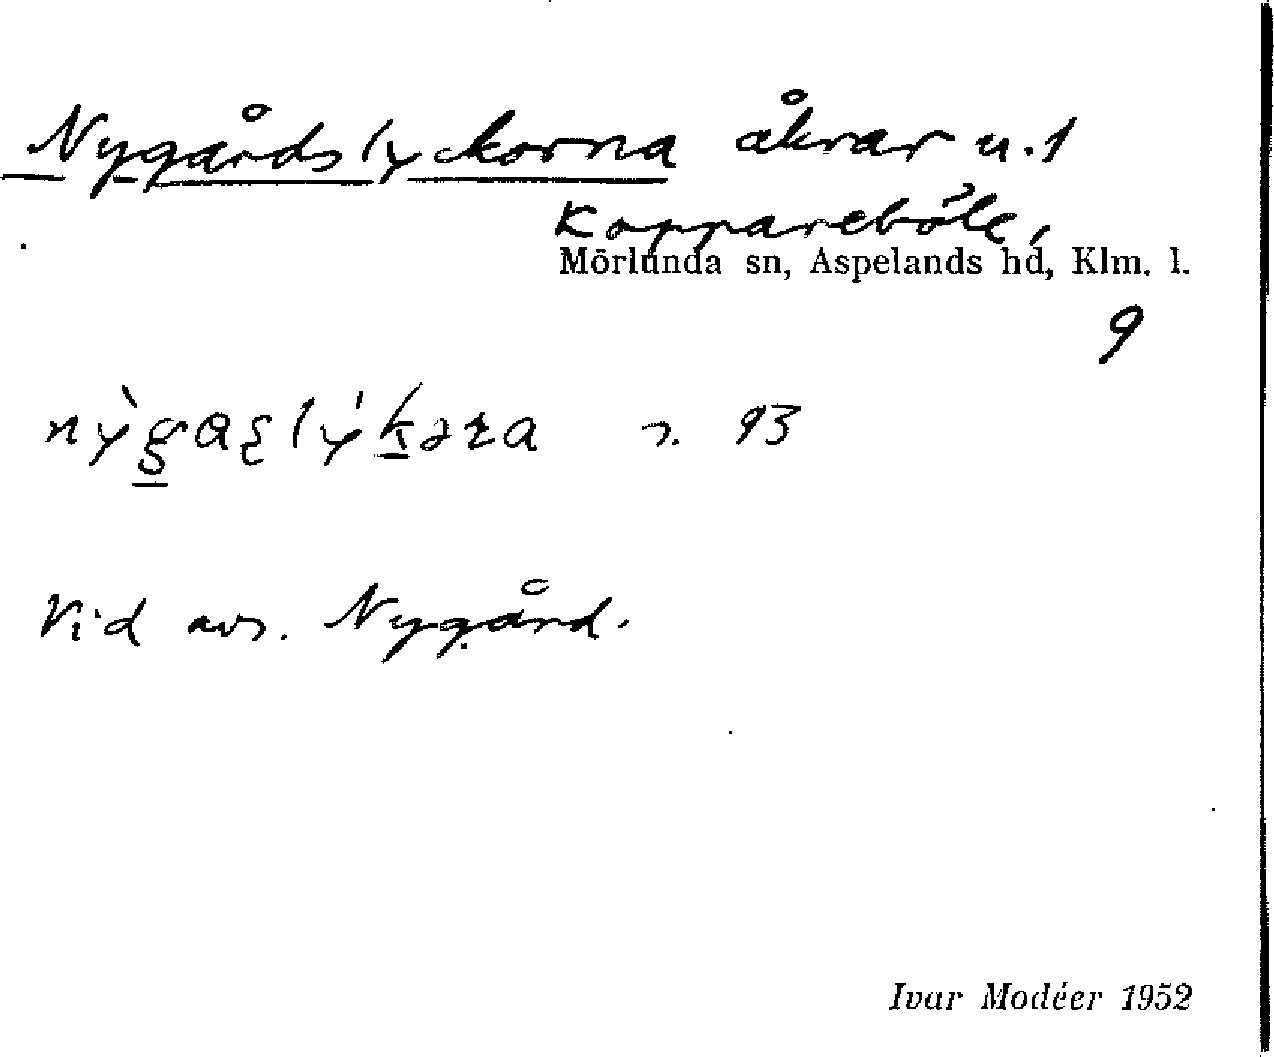 Nygårdslyckorna åkrar u. 1
Koppareböle,
Mörlunda sn, Aspelands hd, Klm. l.
9
93
Vid avs. Nygård.
Ivar Modéer 1952